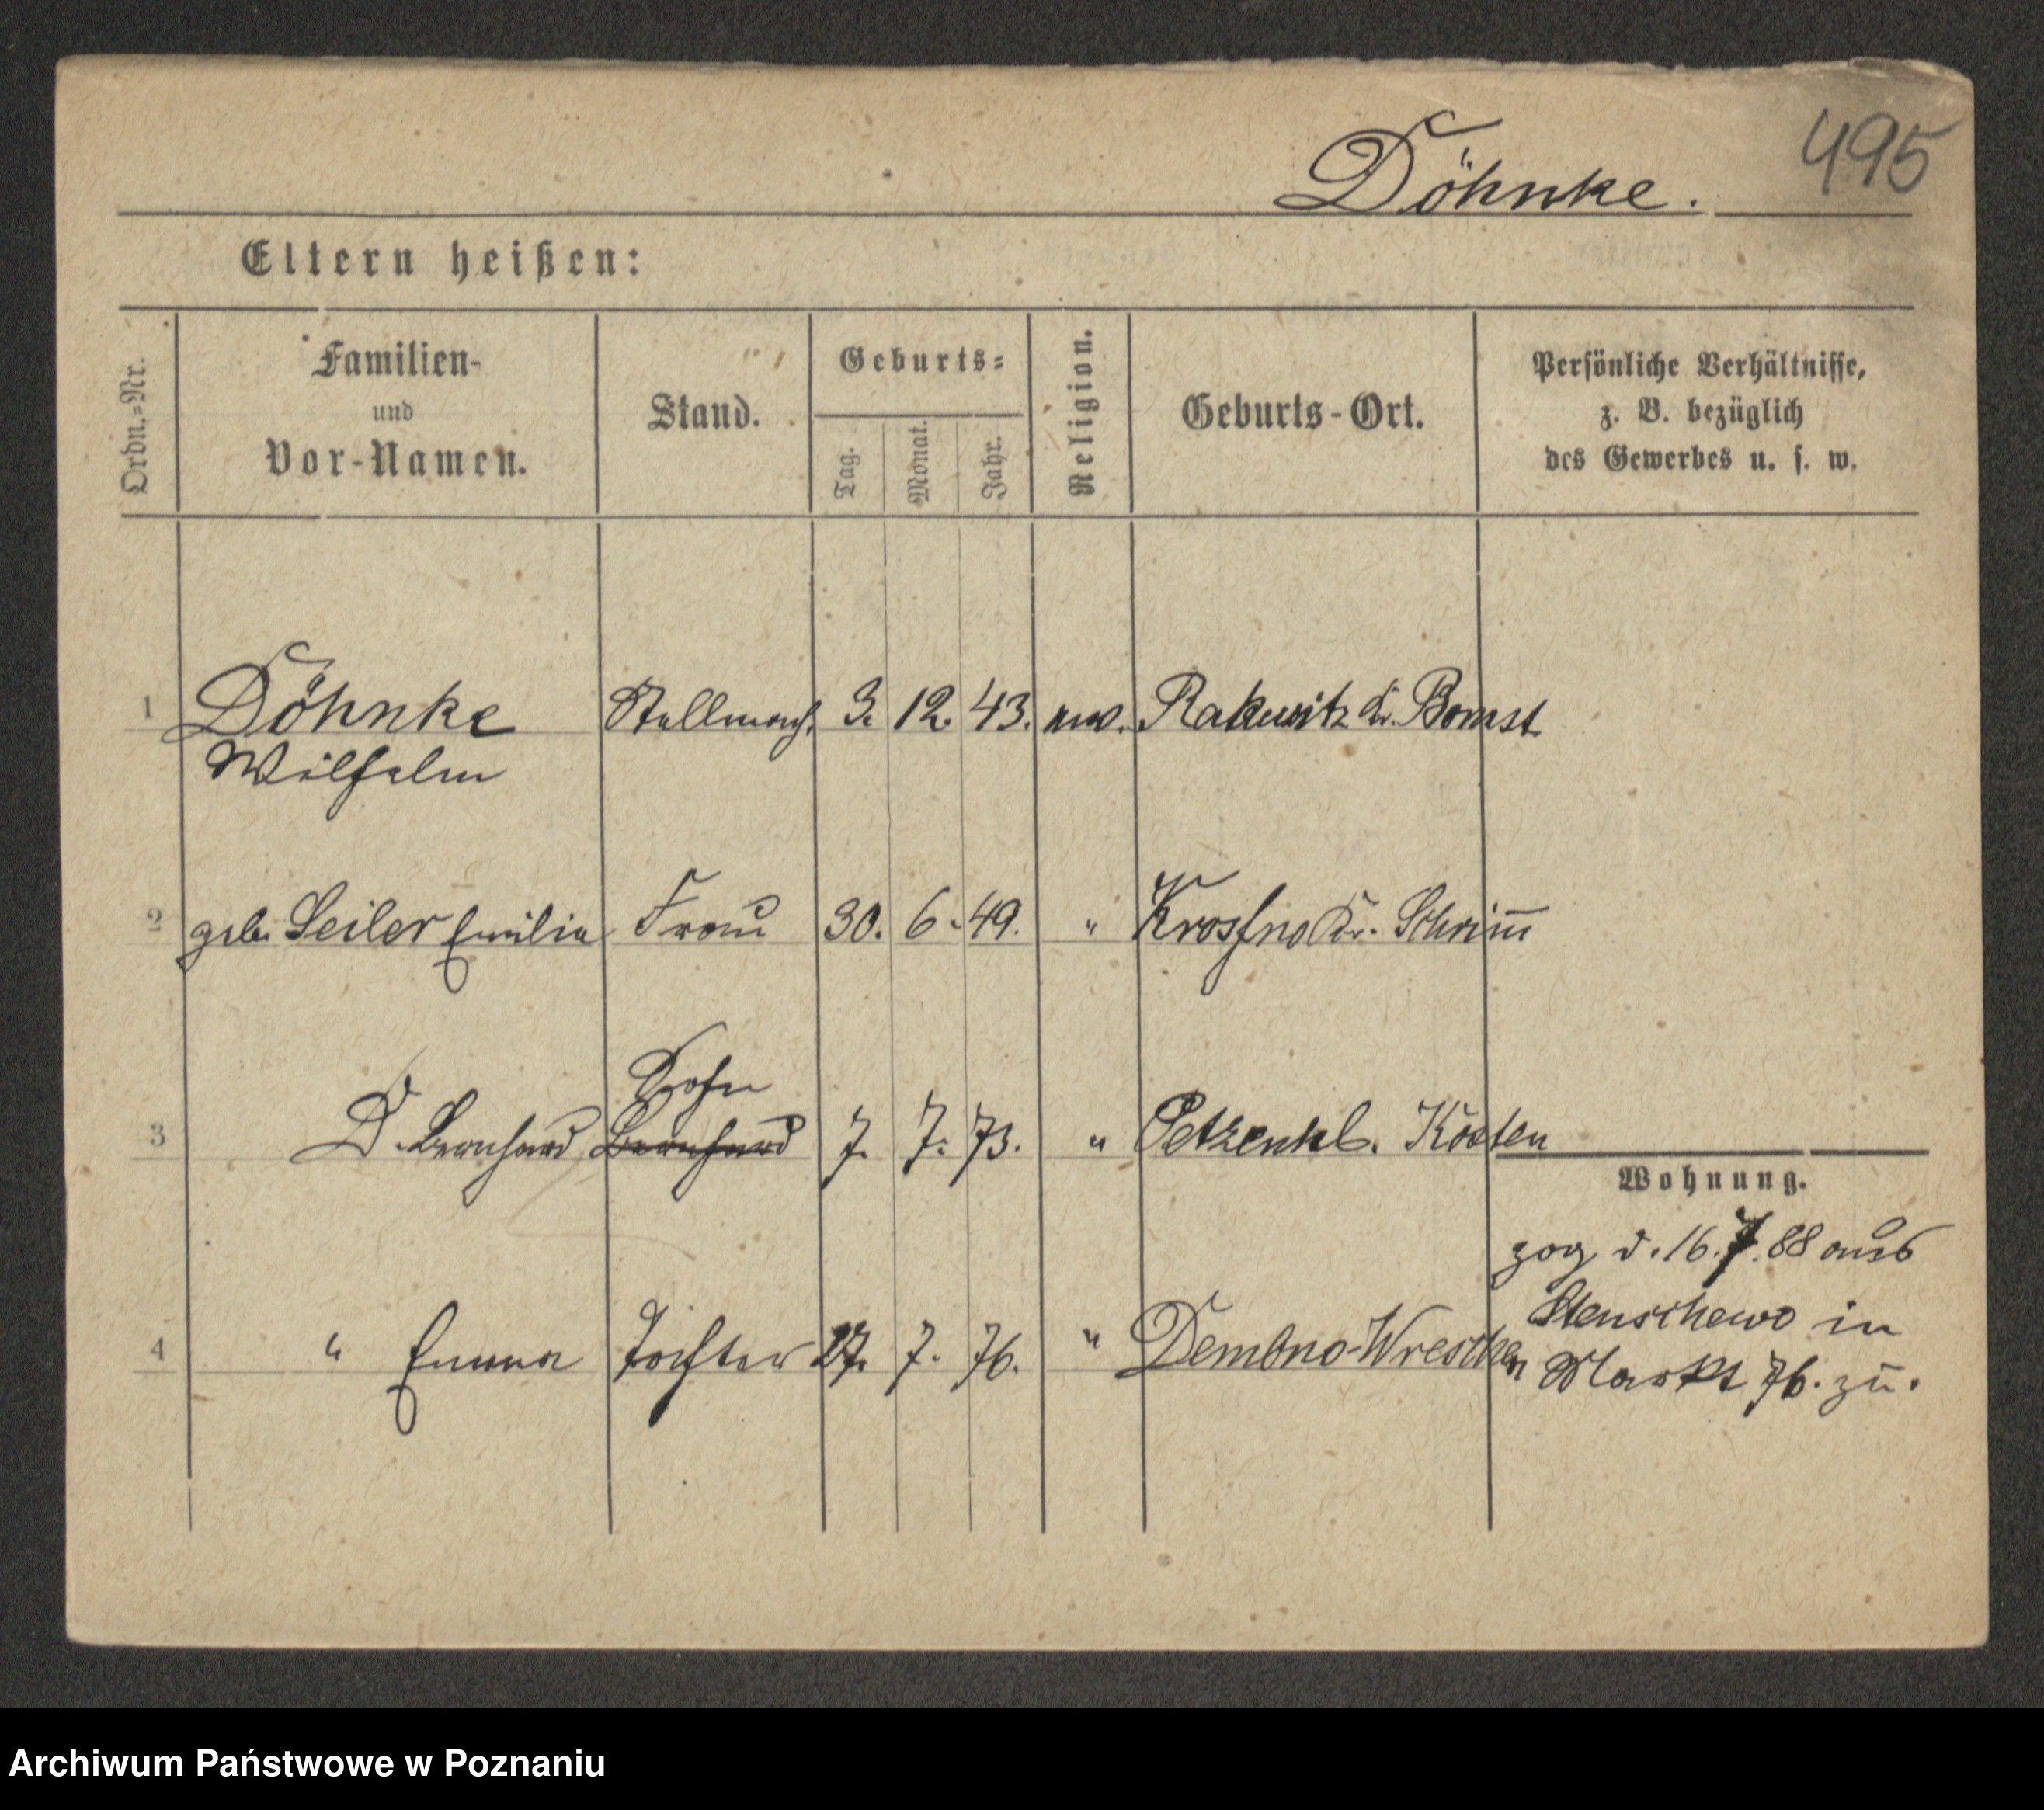 495
Döhnke.
Eltern heißen:
Ordn.=Nr.
Familien-
und
Vor-Namen.
Stand.
Geburts=
Tag.
Monat.
Jahr.
Religion.
Geburts-Ort.
Persönliche Verhältnisse,
z. B. bezüglich
des Gewerbes u. s. w.
1 Döhnke Stellmach. 3. 12. 43. Rakwitz Kr. Bomst
Wilhelm
2 geb. Seiler Emilie Frau 30. 6. 49. " Krosno Kr. Schrim̅
Sohn
3 D. Bernhard Bernhard 7. 7. 73. " Kosten
4 " Emma Tochter 27. 7. 76. " Dembno-
Wohnung.
zog d. 16. 7. 88 aus
Stenschewo in
Markt 76. zu.
Archiwum Państwowe w Poznaniu